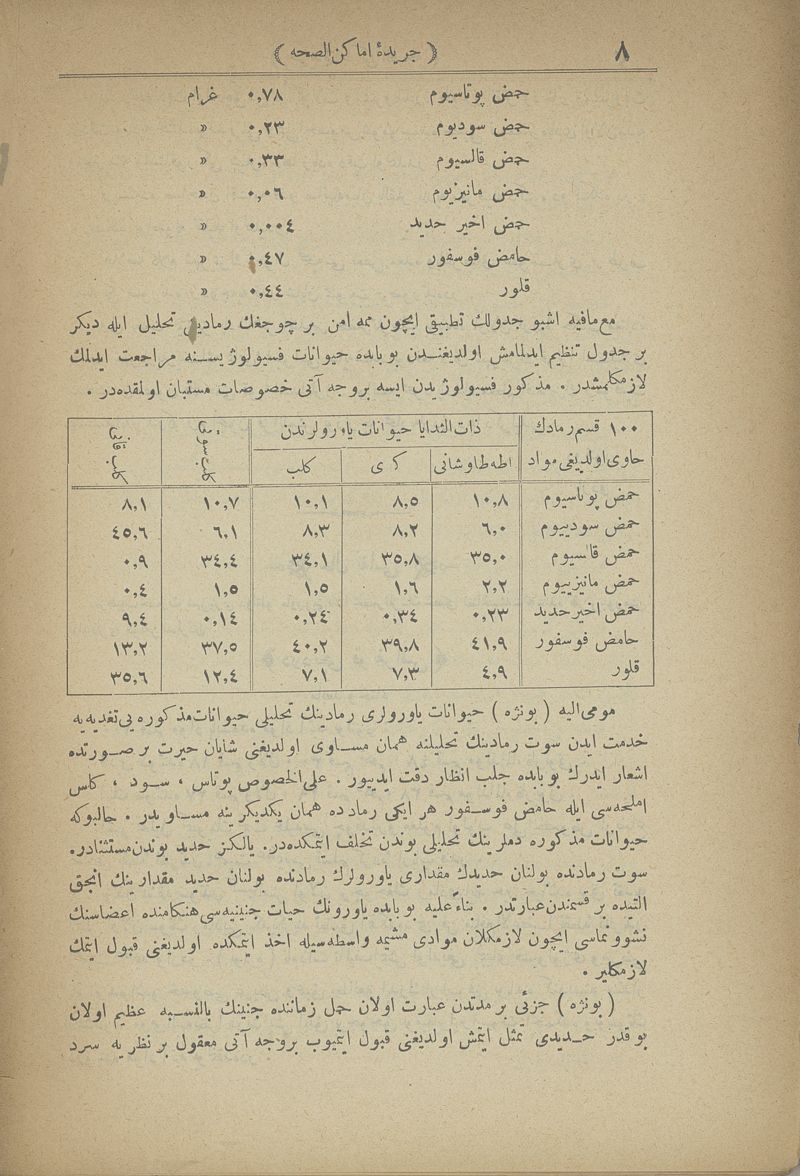 ٨ ﴿ جريدهٔ اماكن الصحه ﴾
حمض پوتاسيوم ٠,٧٨ غرام
حمض سوديوم ٠,٢٣ «
حمض قالسيوم ٠,٣٣ «
حمض مانيزيوم ٠,٠٦ «
حمض اخير حديد ٠,٠٠٤ «
حامض فوسفور ٠,٤٧ «
قلور ٠,٤٤ «
مع مافيه اشبو جدولك تطبيقى ايچون ممه امن بر چوجغك رمادينى تحليل ايله ديكر
بر جدول تنظيم ايدلمامش اولديغندن بوبابده حيوانات فسيولوژيسنه مراجعت ايدلمك
لازمكلمشدر . مذكور فسيولوژيدن ايسه بروجه آتى خصوصات مستبان اولمقده‌در .
١٠٠ قسم رمادك ذات الثدايا حيوانات ياورولرندن كلب سوتى كلب قانى
حاوى اولديغى مواد اطه طاوشانى كدى كلب
حمض پوتاسيوم ١٠,٨ ٨,٥ ١٠,١ ١٠,٧ ٨,١
حمض سودييوم ٦,٠ ٨,٢ ٨,٣ ٦,١ ٤٥,٦
حمض قالسيوم ٣٥,٠ ٣٥,٨ ٣٤,١ ٣٤,٤ ٠,٩
حمض مانيزييوم ٢,٢ ١,٦ ١,٥ ١,٥ ٠,٤
حمض اخير حديد ٠,٢٣ ٠,٣٤ ٠,٢٤ ٠,١٤ ٩,٤
حامض فوسفور ٤١,٩ ٣٩,٨ ٤٠,٢ ٣٧,٥ ١٣,٢
قلور ٤,٩ ٧,٣ ٧,١ ١٢,٤ ٣٥,٦
مومى اليه ( بونژه ) حيوانات ياورولرى رمادينك تحليلى حيوانات مذكوره‌يى تغديه‌يه
خدمت ايدن سوت رمادينك تحليلنه همان مساوى اولديغنى شايان حيرت بر صورتده
اشعار ايدرك بوبابده جلب انظار دقت ايدييور . على الخصوص پوتاس ، سود ، كلس
املحه‌سى ايله حامض فوسفور هر ايكى رمادده همان يكديكرينه مساويدر . حالبوكه
حيوانات مذكوره دملرينك تحليلى بوندن تخلف ايتمكده‌در. يالكز حديد بوندن مستثنادر.
سوت رمادنده بولنان حديدك مقدارى ياورولرك رمادنده بولنان حديد مقدارينك انجق
التيده بر قسمندن عبارتدر . بناءً عليه بوبابده ياورونك حيات جنينيه‌سى هنكامنده اعضاسنك
نشوونماسى ايچون لازمكلان موادى مشيمه واسطه‌سيله اخذ ايتمكده اولديغنى قبول ايتمك
لازمكلير .
( بونژه ) جزئى بر مدتدن عبارت اولان حمل زماننده جنينك بالنسبه عظيم اولان
بوقدر حديدى تمثل ايتمش اولديغنى قبول ايتميوب بروجه آتى معقول بر نظريه سرد